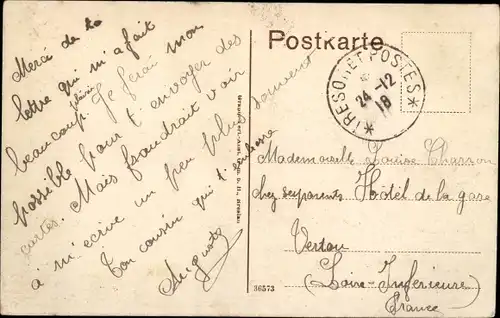 Merci de la
lettre qui m'a fait
beaucoup plaisir. Je ferai mon
possible pour t'envoyer des
cartes. Mais faudrait voir
à m'écrire un peu plus souvent
Ton cousin qui t'embrasse
Postkarte
* TRESOR ET POSTES *
24 -12
18
Mademoiselle Louise
chez ses parents Hôtel de la gare
Vertou
(Loire-Inférieure)
France
36573